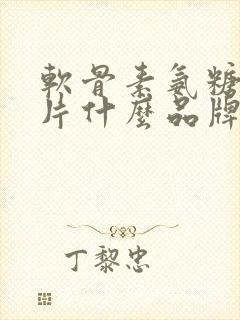 軟骨素氨糖
片什麼品牌
丁黎忠